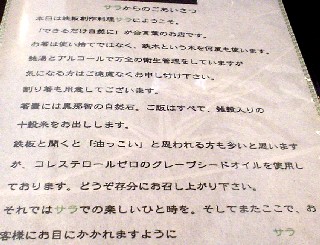 サラからのごあいさつ
本日は鉄板創作料理サラにようこそ。
「できるだけ自然に」が合言葉のお店です。
お箸は使い捨てではなく、鉄木という木を何度も使います。
熱湯とアルコールで万全の衛生管理をしていますが
気になる方はご遠慮なくお申し付け下さい。
割り箸も用意してございます。
箸置には黒那智の自然石。ご飯はすべて、雑穀入りの
十穀米をお出しします。
鉄板と聞くと「油っこい」と思われる方も多いと思います
が、コレステロールゼロのグレープシードオイルを使用し
ております。どうぞ存分にお召し上がり下さい。
それではサラでの楽しいひと時を。そしてまたここで、お
客様にお目にかかれますように サラ